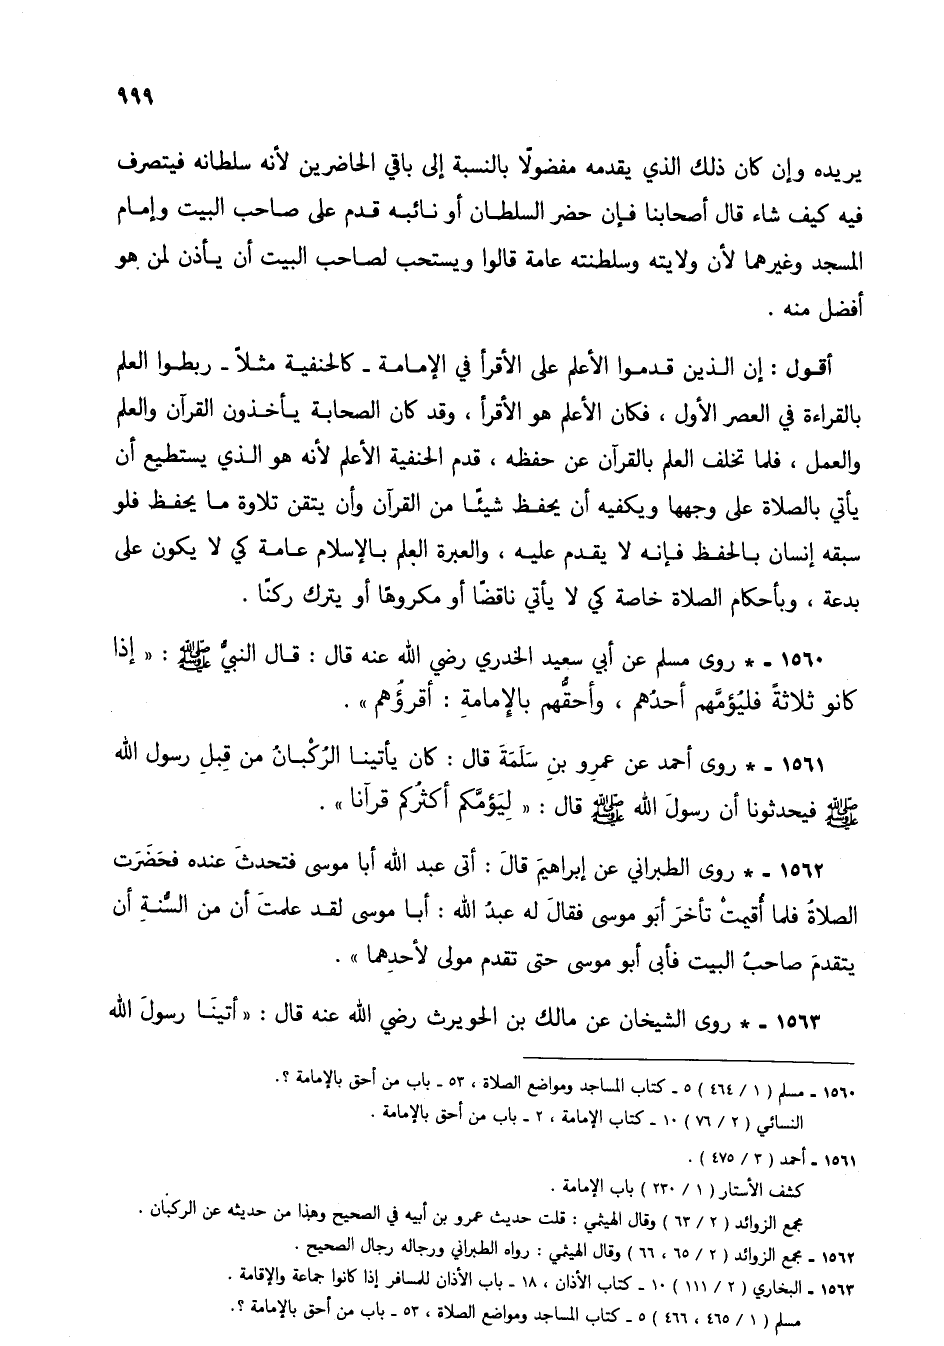 ٩٩٩
يريده وإن كان ذلك الذي يقدمه مفضولًا بالنسبة إلى باقي الحاضرين لأنه سلطانه فيتصرف
فيه كيف شاء قال أصحابنا فإن حضر السلطان أو نائبه قدم على صاحب البيت وإمام
المسجد وغيرهما لأن ولايته وسلطنته عامة قالوا ويستحب لصاحب البيت أن يأذن لمن هو
أفضل منه .
أقول : إن الذين قدموا الأعلم على الأقرأ في الإمامة ـ كالحنفية مثلاً ـ ربطوا العلم
بالقراءة في العصر الأول ، فكان الأعلم هو الأقرأ ، وقد كان الصحابة يأخذون القرآن والعلم
والعمل ، فلما تخلف العلم بالقرآن عن حفظه ، قدم الحنفية الأعلم لأنه هو الذي يستطيع أن
يأتي بالصلاة على وجهها ويكفيه أن يحفظ شيئًا من القرآن وأن يتقن تلاوة ما يحفظ فلو
سبقه إنسان بالحفظ فإنه لا يقدم عليه ، والعبرة العلم بالإسلام عامة كي لا يكون على
بدعة ، وبأحكام الصلاة خاصة كي لا يأتي ناقضًا أو مكروهًا أو يترك ركنًا .
١٥٦٠ ـ * روى مسلم عن أبي سعيد الخدري رضي الله عنه قال : قال النبيُّ ﷺ : « إذا
كانو ثلاثةً فليُؤمَّهم أحدُهم ، وأحقُّهم بالإمامةِ : أقرؤُهم » .
١٥٦١ ـ * روى أحمد عن عمرو بنِ سَلَمَةَ قال : كان يأتينا الرُكْبانُ من قِبلِ رسول الله
ﷺ فيحدثونا أن رسولَ الله ﷺ قال : « لِيَؤمَّكم أكثرُكم قرآنا » .
١٥٦٢ ـ * روى الطبراني عن إبراهيمَ قالَ : أتى عبد الله أبا موسى فتحدثَ عنده فحَضَرَت
الصلاةُ فلما أُقيمتْ تأخرَ أبَو موسى فقالَ له عبدُ الله : أبا موسى لقد علمتَ أن من السُّنةِ أن
يتقدمَ صاحبُ البيت فأبى أبو موسى حتى تقدم مولى لأحدِهما » .
١٥٦٣ ـ * روى الشيخان عن مالك بن الحويرث رضي الله عنه قال : « أتينَا رسولَ الله
١٥٦٠ ـ مسلم ( ١ / ٤٦٤ ) ٥ ـ كتاب المساجد ومواضع الصلاة ، ٥٣ ـ باب من أحق بالإمامة ؟.
النسائي ( ٢ / ٧٦ ) ١٠ ـ كتاب الإمامة ، ٢ ـ باب من أحق بالإمامة .
١٥٦١ ـ أحمد ( ٣ / ٤٧٥ ) .
كشف الأستار ( ١ / ٢٣٠ ) باب الإمامة .
مجمع الزوائد ( ٢ / ٦٣ ) وقال الهيثمي : قلت حديث عمرو بن أبيه في الصحيح وهذا من حديثه عن الركبان .
١٥٦٢ ـ مجمع الزوائد ( ٢ / ٦٥ ، ٦٦ ) وقال الهيثمي : رواه الطبراني ورجاله رجال الصحيح .
١٥٦٣ ـ البخاري ( ٢ / ١١١ ) ١٠ ـ كتاب الأذان ، ١٨ ـ باب الأذان للمسافر إذا كانوا جماعة والإقامة .
مسلم ( ١ / ٤٦٥ ، ٤٦٦ ) ٥ ـ كتاب المساجد ومواضع الصلاة ، ٥٣ ـ باب من أحق بالإمامة ؟.